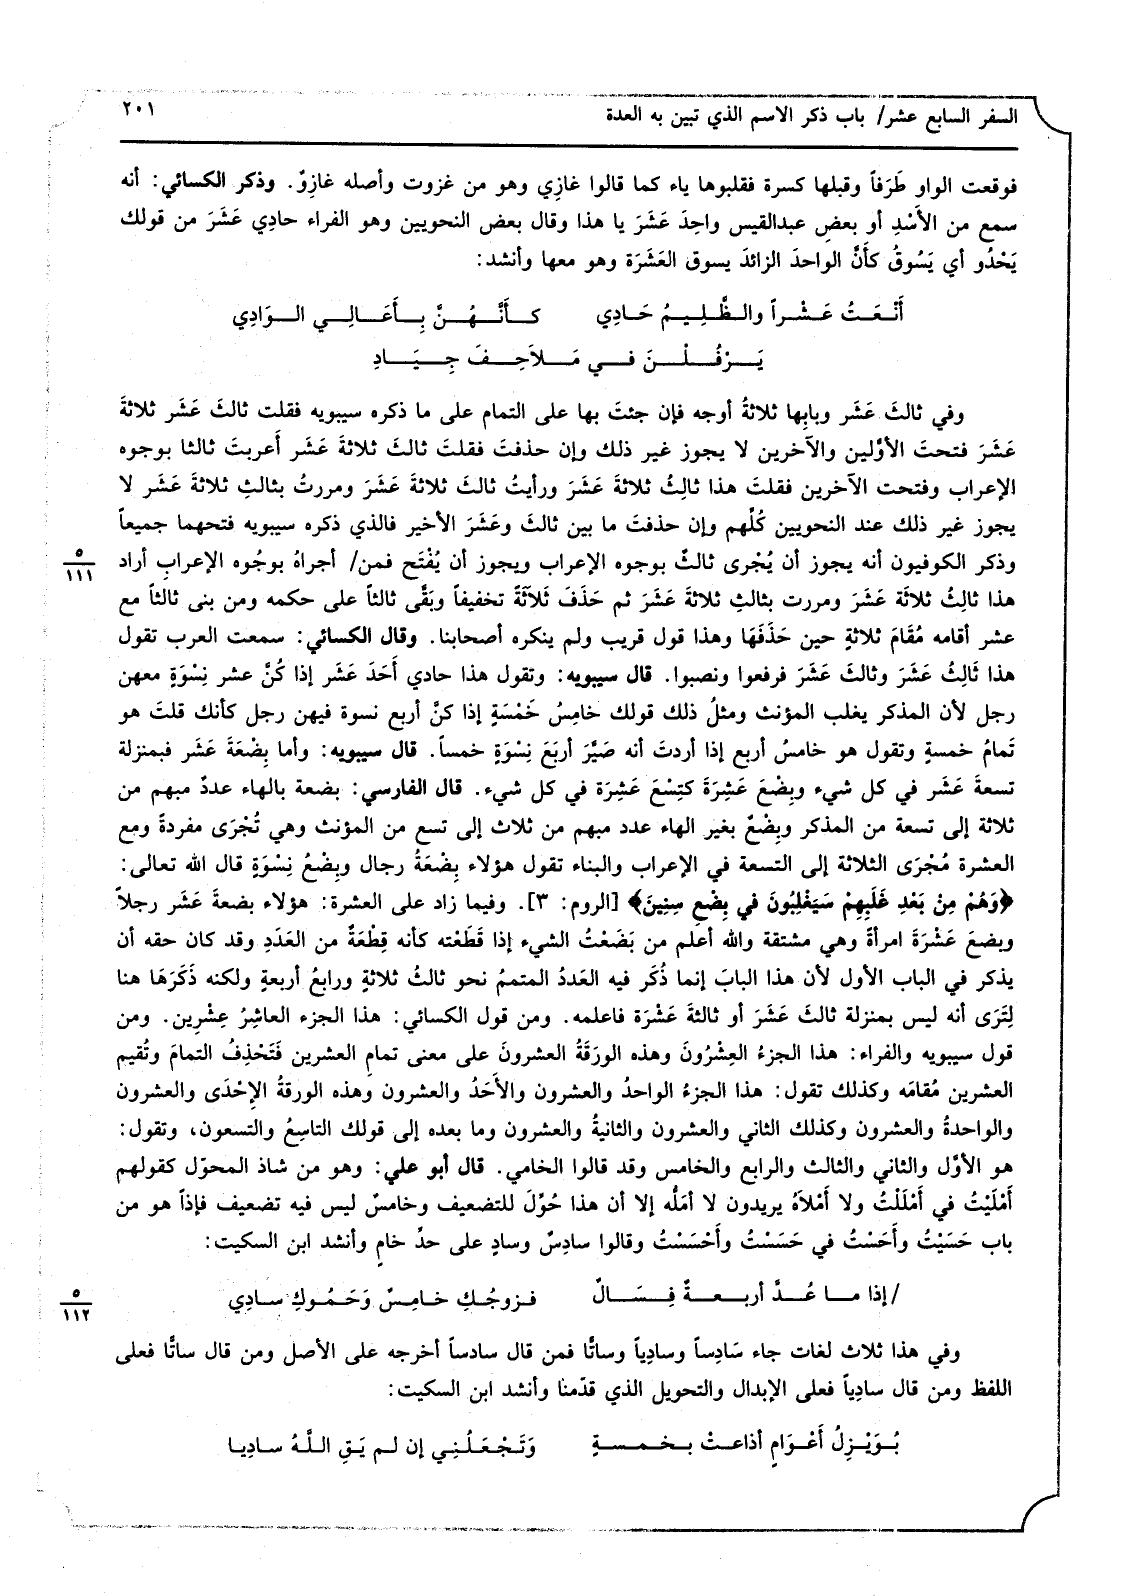 السفر السابع عشر/ باب ذكر الاسم الذي تبين به العدة ٢٠١
فوقعت الواو طَرَفاً وقبلها كسرة فقلبوها ياء كما قالوا غازِي وهو من غزوت وأصله غازِوٌ. وذكر الكسائي: أنه
سمع من الأَسْدِ أو بعضِ عبدالقيس واحِدَ عَشَرَ يا هذا وقال بعض النحويين وهو الفراء حادِي عَشَرَ من قولك
يَحْدُو أي يَسُوقُ كأَنَّ الواحدَ الزائدَ يسوق العَشَرَة وهو معها وأنشد:
أَنْعَتُ عَشْراً والظَّلِيمُ حَادِي كأَنَّهُنَّ بِأَعَالِي الوَادِي
يَرْفُلْنَ في مَلاَحِفَ جِيَادِ
وفي ثالثَ عَشَر وبابِها ثلاثةُ أوجه فإن جئتَ بها على التمام على ما ذكره سيبويه فقلت ثالثَ عَشَر ثلاثةَ
عَشَرَ فتحتَ الأوَّلين والآخرين لا يجوز غير ذلك وإن حذفتَ فقلتَ ثالثَ ثلاثةَ عَشَر أعربتَ ثالثا بوجوه
الإعراب وفتحت الآخرين فقلتَ هذا ثالِثُ ثلاثةَ عَشَرَ ورأيتُ ثالثَ ثلاثةَ عَشَرَ ومررتُ بثالثِ ثلاثةَ عَشَر لا
يجوز غير ذلك عند النحويين كُلِّهم وإن حذفتَ ما بين ثالث وعَشَرَ الأخير فالذي ذكره سيبويه فتحهما جميعاً
وذكر الكوفيون أنه يجوز أن يُجْرى ثالثٌ بوجوه الإعراب ويجوز أن يُفْتَح فمن/ أجراهُ بوجُوه الإعرابِ أراد
٥
١١١
هذا ثالِثُ ثلاثَة عَشَرَ ومررت بثالثِ ثلاثةَ عَشَرَ ثم حَذَفَ ثَلاَثَةً تخفيفاً وبَقَّى ثالثاً على حكمه ومن بنى ثالثاً مع
عشر أقامه مُقَامَ ثلاثةٍ حين حَذَفَهَا وهذا قول قريب ولم ينكره أصحابنا. وقال الكسائي: سمعت العرب تقول
هذا ثَالِثُ عَشَرَ وثالثَ عَشَرَ فرفعوا ونصبوا. قال سيبويه: وتقول هذا حادي أَحَدَ عَشَر إذا كُنَّ عشر نِسْوَةٍ معهن
رجل لأن المذكر يغلب المؤنث ومثلُ ذلك قولك خامِسُ خَمْسَةٍ إذا كنَّ أربع نسوة فيهن رجل كأنك قلتَ هو
تَمامُ خمسةٍ وتقول هو خامسُ أربع إذا أردتَ أنه صَيَّرَ أربَعَ نِسْوَةٍ خمساً. قال سيبويه: وأما بِضْعَةَ عَشَر فبمنزلة
تسعةَ عَشَر في كل شيء وبِضْعَ عَشِرَةَ كتِسْعَ عَشِرَة في كل شيء. قال الفارسي: بضعة بالهاء عددٌ مبهم من
ثلاثة إلى تسعة من المذكر وبِضْعٌ بغير الهاء عدد مبهم من ثلاث إلى تسع من المؤنث وهي تُجْرَى مفردةً ومع
العشرة مُجْرَى الثلاثة إلى التسعة في الإعراب والبناء تقول هؤلاء بِضْعَةُ رجال وبِضْعُ نِسْوَةٍ قال الله تعالى:
﴿وَهُمْ مِنْ بَعْدِ غَلَبِهِمْ سَيَغْلِبُونَ في بِضْعِ سِنِينَ﴾ [الروم: ٣]. وفيما زاد على العشرة: هؤلاء بضعةَ عَشَر رجلاً
وبضعَ عَشْرَةَ امرأةً وهي مشتقة والله أعلم من بَضَعْتُ الشيء إذا قَطَعْته كأنه قِطْعَةٌ من العَدَدِ وقد كان حقه أن
يذكر في الباب الأول لأن هذا البابَ إنما ذُكَر فيه العَددُ المتممُ نحو ثالثُ ثلاثةٍ ورابعُ أربعةٍ ولكنه ذَكَرَها هنا
لِتَرَى أنه ليس بمنزلة ثالثَ عَشَرَ أو ثالثةَ عَشْرَة فاعلمه. ومن قول الكسائي: هذا الجزء العاشِرُ عِشْرِين. ومن
قول سيبويه والفراء: هذا الجزءُ العِشْرُونَ وهذه الورَقَةُ العشرونَ على معنى تمامِ العشرين فَتَحْذِفُ التمامَ وتُقيم
العشرين مُقامَه وكذلك تقول: هذا الجزءُ الواحدُ والعشرون والأَحَدُ والعشرون وهذه الورقةُ الإحْدَى والعشرون
والواحدةُ والعشرون وكذلك الثاني والعشرون والثانيةُ والعشرون وما بعده إلى قولك التاسِعُ والتسعون، وتقول:
هو الأوَّل والثاني والثالث والرابع والخامس وقد قالوا الخامي. قال أبو علي: وهو من شاذ المحوّل كقولهم
أَمْلَيْتُ في أَمْلَلْتُ ولا أَمْلاَهُ يريدون لا أمَلُّه إلا أن هذا حُوِّلَ للتضعيف وخامسٌ ليس فيه تضعيف فإذاً هو من
باب حَسَيْتُ وأَحَسْتُ في حَسَسْتُ وأَحْسَسْتُ وقالوا سادِسٌ وسادٍ على حدِّ خامٍ وأنشد ابن السكيت:
/إذا مـا عُـدَّ أربـعـةٌ فِـسَـالٌ فـزوجُـكِ خـامِـسٌ وَحَـمُـوكِ سـادِي
٥
١١٢
وفي هذا ثلاث لغات جاء سَادِساً وسادِياً وساتًّا فمن قال سادساً أخرجه على الأصل ومن قال ساتًّا فعلى
اللفظ ومن قال سادِياً فعلى الإبدال والتحويل الذي قدّمنا وأنشد ابن السكيت:
بُـوَيْـزِلُ أَعْـوَامٍ أذاعـتْ بـخـمـسـةٍ وَتَـجْـعَـلُـنِـي إن لـم يَـقِ الـلَّـهُ سـادِيـا